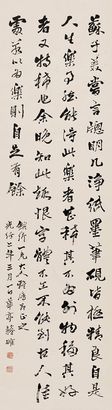 蘇子美嘗言牕明几淨紙墨筆硯皆極精良亦自是
人生樂事能得此樂者甚稀其不為外物移其好
者又特稀也余晚知此趣恨字體不工不能到古人佳
處若以為樂則自是有餘
一兄大人
光緒七年三月華亭